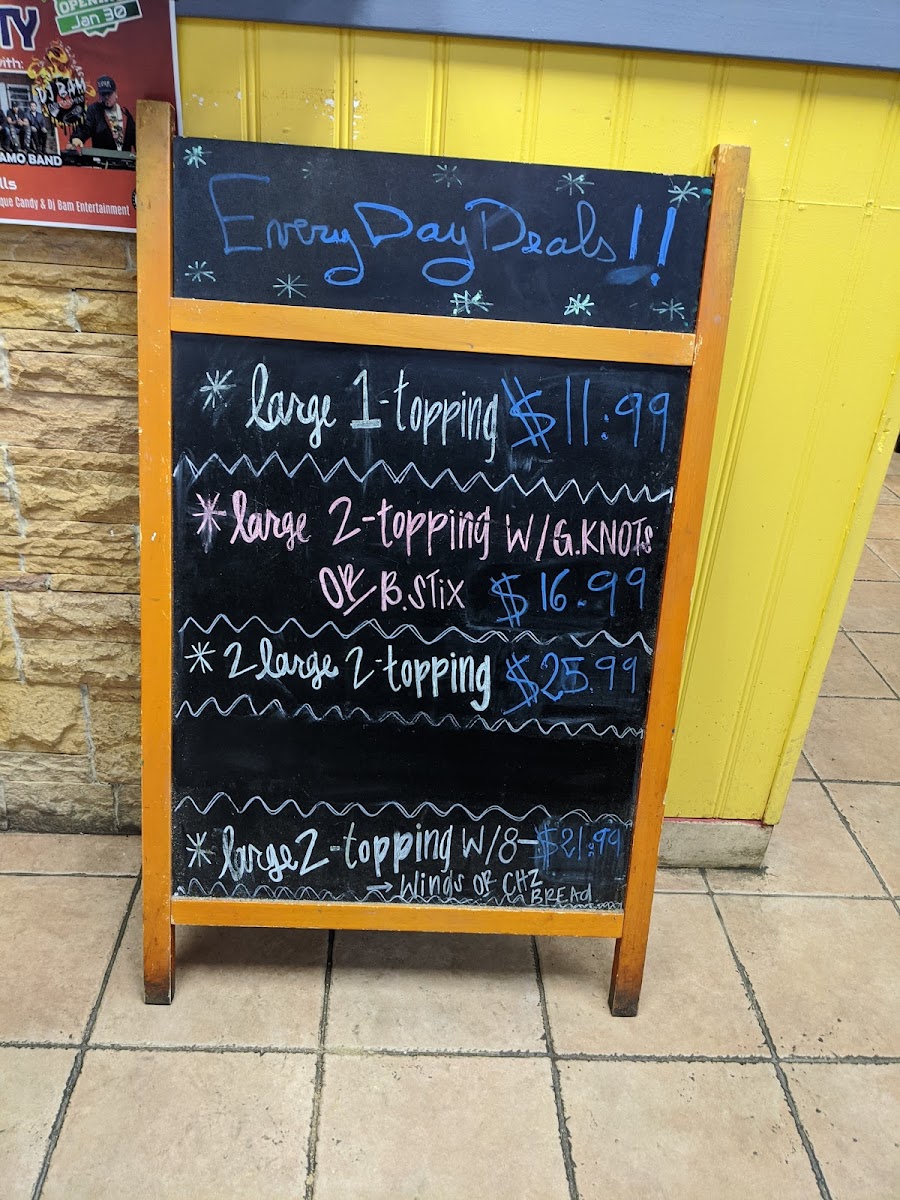 OPENING
Jan 30
TY
with:
DJ BAM
AMO BAND
lls
que Candy & Dj Bam Entertainment
Every Day Deals!!
* large 1-topping $11.99
* large 2-topping W/G.KNOTS
OR B.STix $16.99
* 2 large 2-topping $25.99
* large 2-topping W/8- $21.99
→ Winds OR CHZ
BREAd